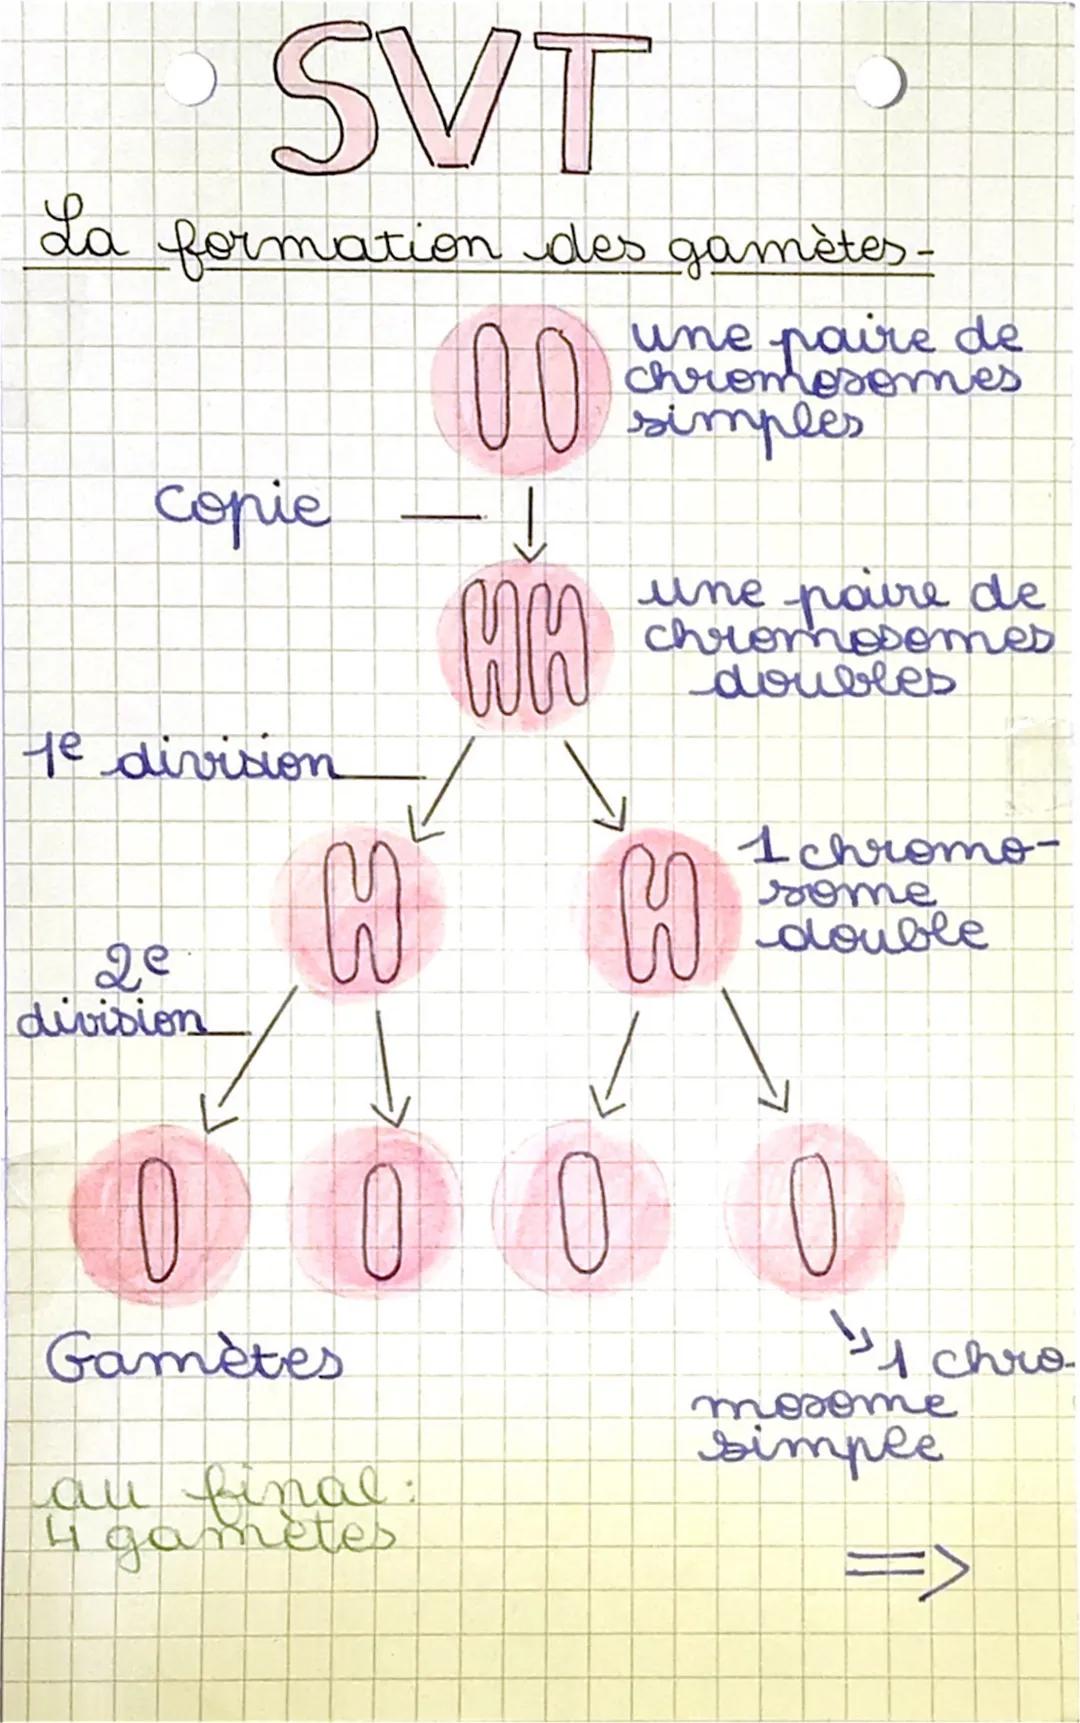 SVT
La formation des gamètes-
une paire de
chromosomes
simples
copie
une paire de
chromosomes
doubles
1e division
1 chromo-
some
double
2e
division
Gamètes
1 chro-
mosome
simple
au final:
4 gamètes
=>